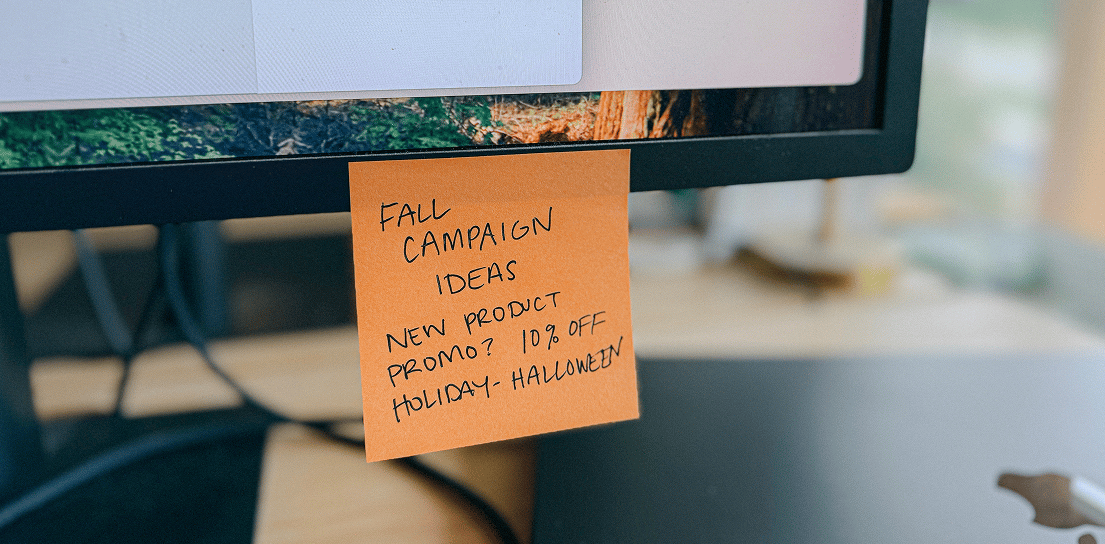 FALL
CAMPAIGN
IDEAS
NEW PRODUCT
PROMO? 10% OFF
HOLIDAY- HALLOWEEN